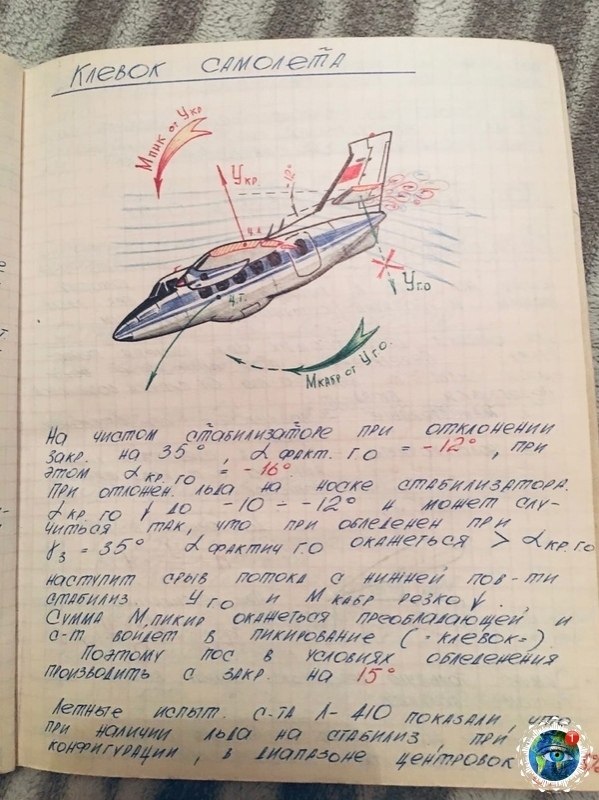 Клевок самолета
Мпик от Укр
Укр.
-12°
ц.д.
ц.т.
Уго
Мкабр от Уго.
На чистом стабилизаторе при отклонении
закр. на 35°, α факт. го = -12°, при
этом α кр. го = -16°.
При отложен. льда на носке стабилизатора.
α кр. го ↓ до -10 = -12° и может слу-
читься так, что при обледенен при
γз = 35° α фактич го окажеться > α кр. го
наступит срыв потока с нижней пов-ти
стабилиз. Уго и Мкабр резко ↓.
Сумма М.пикир окажеться преобладающей и
с-т войдет в пикирование (=клевок=)
Поэтому пос в условиях обледенения
производить с закр. на 15°
Летные испыт. с-та Л-410 показали, что
при наличии льда на стабилиз, при
конфигурации , в диапазоне центровок